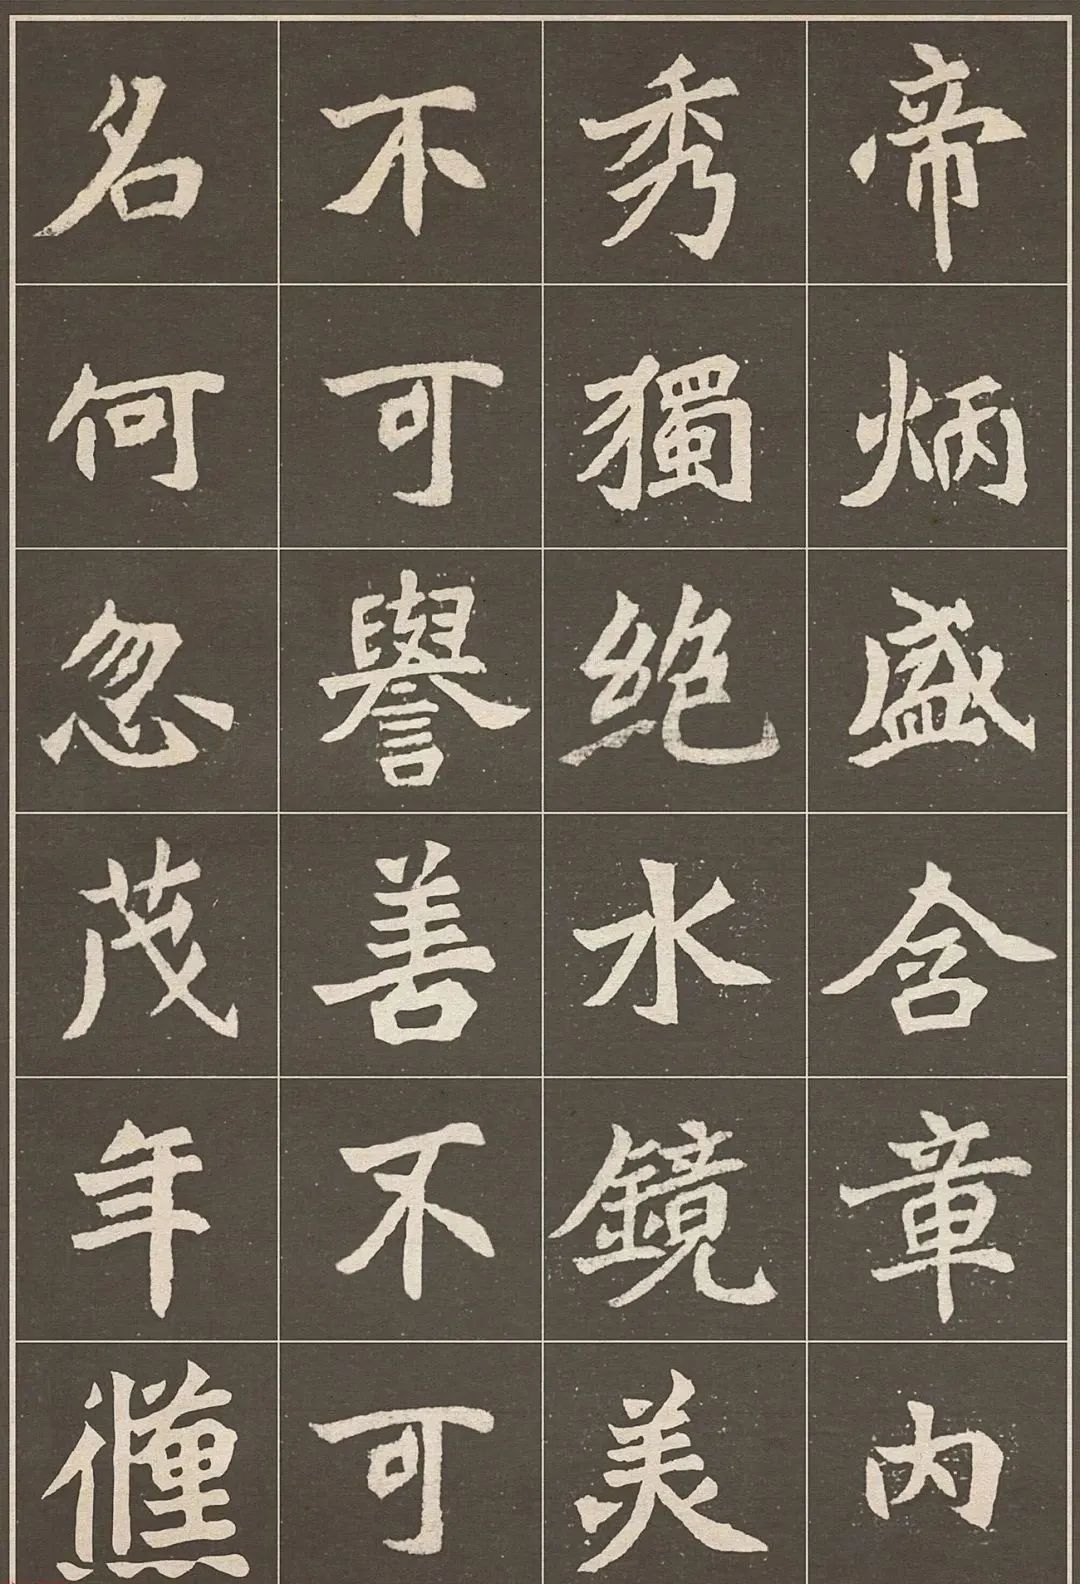 帝炳盛含章内
秀獨绝水鏡美
不可譽善不可
名何忽茂年